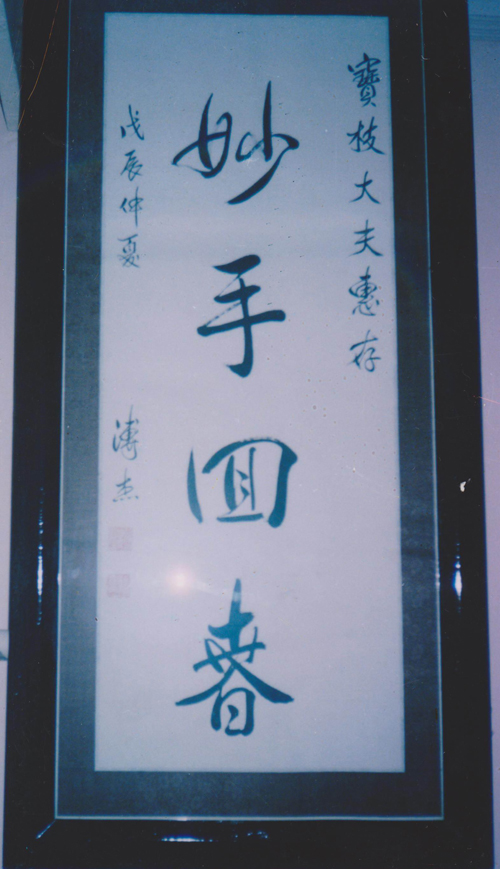 寶枝大夫惠存
妙手回春
戊辰仲夏
溥杰